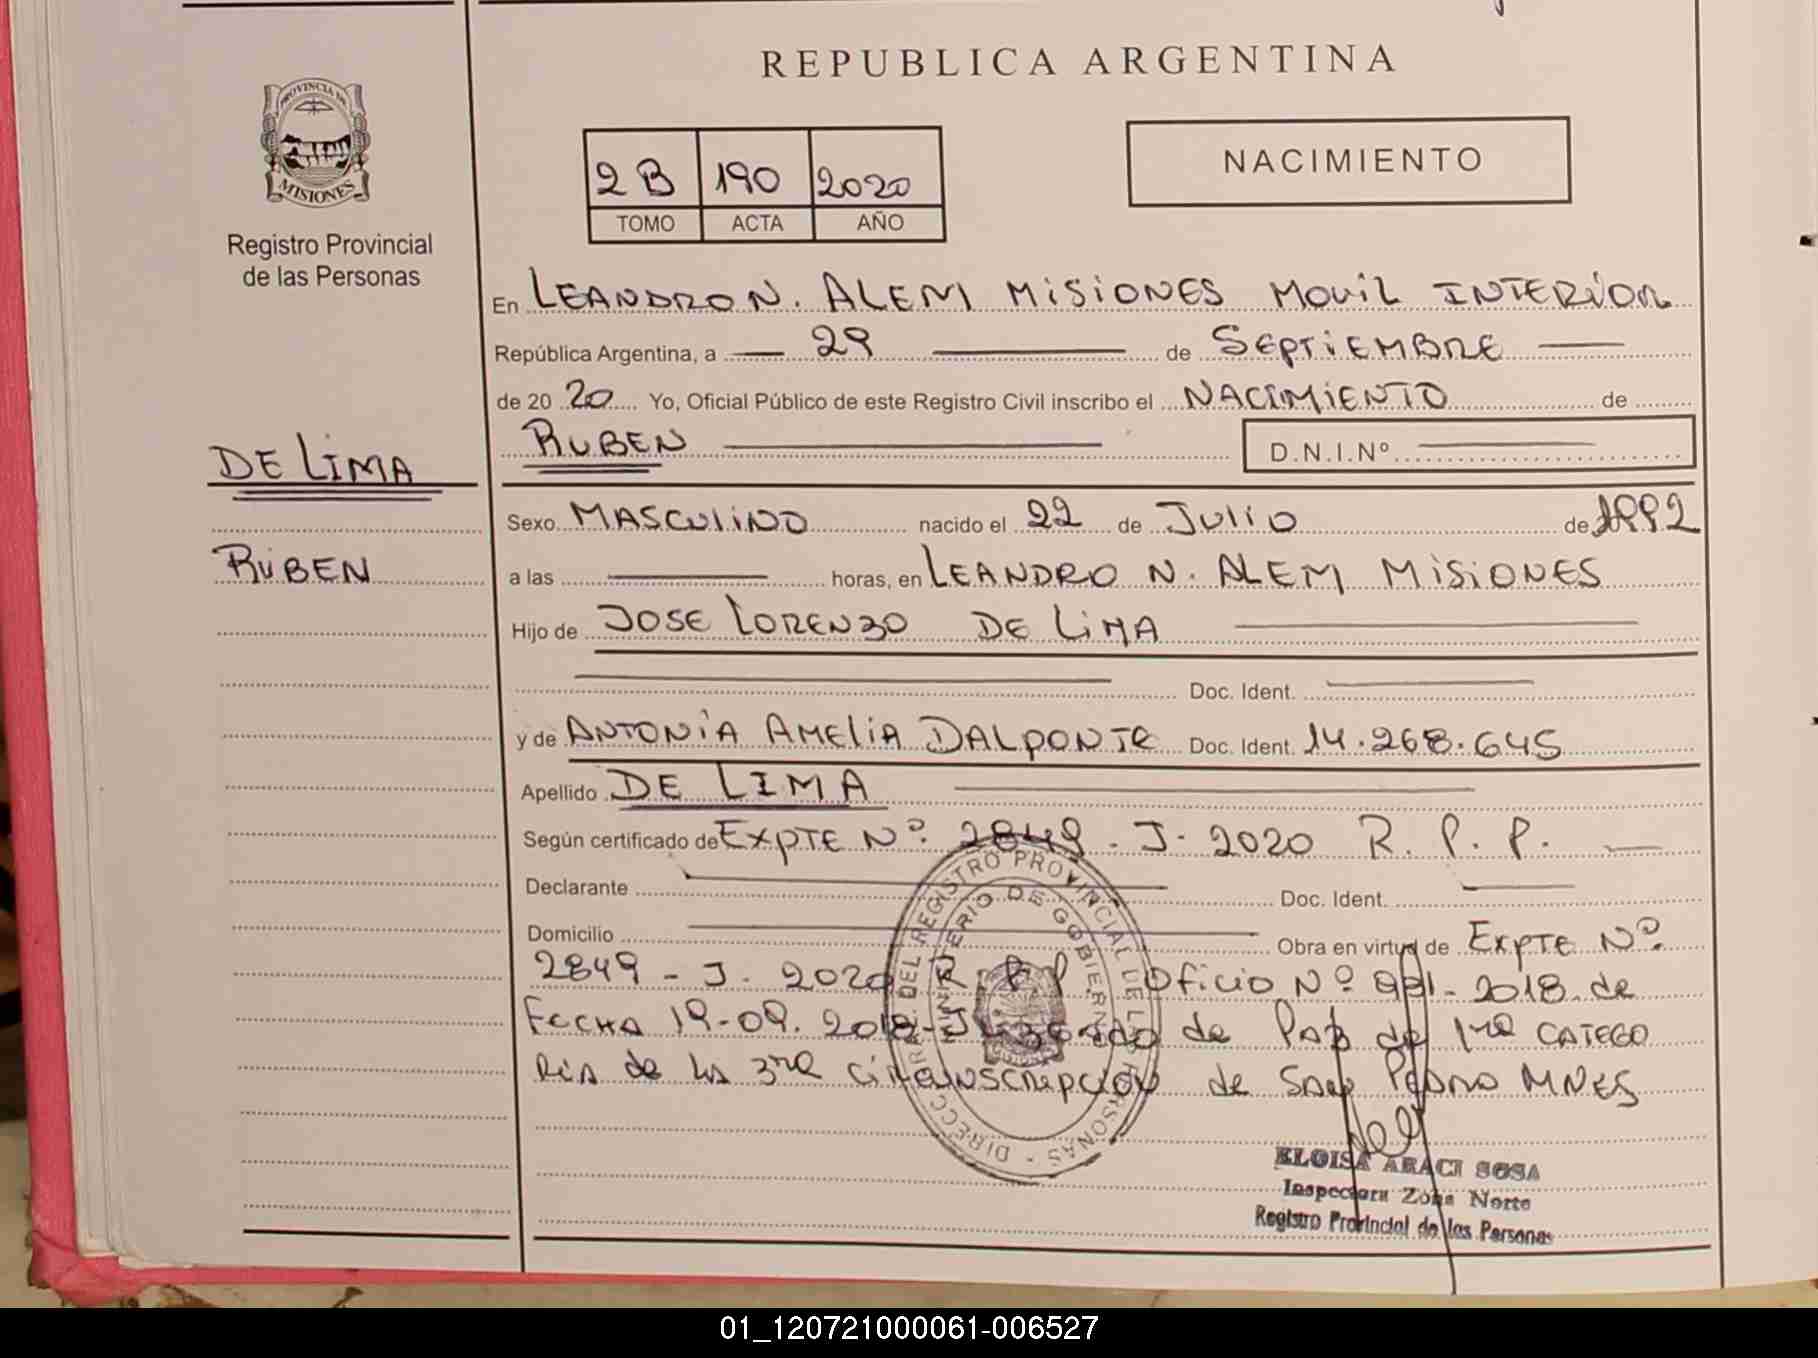 REPUBLICA ARGENTINA
PROVINCIA DE
MISIONES
Registro Provincial
de las Personas
2B 190 2020
TOMO ACTA AÑO
NACIMIENTO
En LEANDRO N. ALEM MISIONES MOVIL INTERIOR
República Argentina, a 29 de SEPTIEMBRE
de 20 20 Yo, Oficial Público de este Registro Civil inscribo el NACIMIENTO de
RUBEN D.N.I.Nº
DE LIMA
RUBEN
Sexo MASCULINO nacido el 22 de JULIO de 1992
a las horas, en LEANDRO N. ALEM MISIONES
Hijo de JOSE LORENZO DE LIMA
Doc. Ident.
y de ANTONIA AMELIA DALPONTE Doc. Ident. 14.268.645
Apellido DE LIMA
Según certificado de EXPTE Nº 2849 - J - 2020 R. P. P.
Declarante Doc. Ident.
Domicilio Obra en virtud de EXPTE Nº
2849 - J - 2020 R. P. P Oficio Nº - 2018 de
FECHA 19-09-2018 - JUZGADO de PAZ de 1ra CATEGO
RIA de LA 3ra CIRCUNSCRIPCION de SAN PEDRO MNES
DIRECC. GRAL. DEL REGISTRO PROVINCIAL DE LAS PERSONAS -
MINISTERIO DE GOBIERNO
ELOISA ARACI SOSA
Inspectora Zona Norte
Registro Provincial de las Personas
01_120721000061-006527